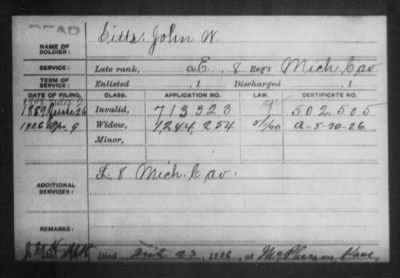 DEAD
NAME OF SOLDIER: John W.
SERVICE: Late rank, Co. E, 8 Reg't Mich. Cav
TERM OF SERVICE: Enlisted , 1 Discharged , 1
DATE OF FILING. CLASS. APPLICATION NO. LAW. CERTIFICATE NO.
1889 June 26 Invalid, 713323 502505
1926 Apr. 9 Widow, 1244254 A-5-20-26
Minor,
ADDITIONAL SERVICES: L 8 Mich. Cav.
REMARKS:
Died 23, 1926, at McPherson Kans,